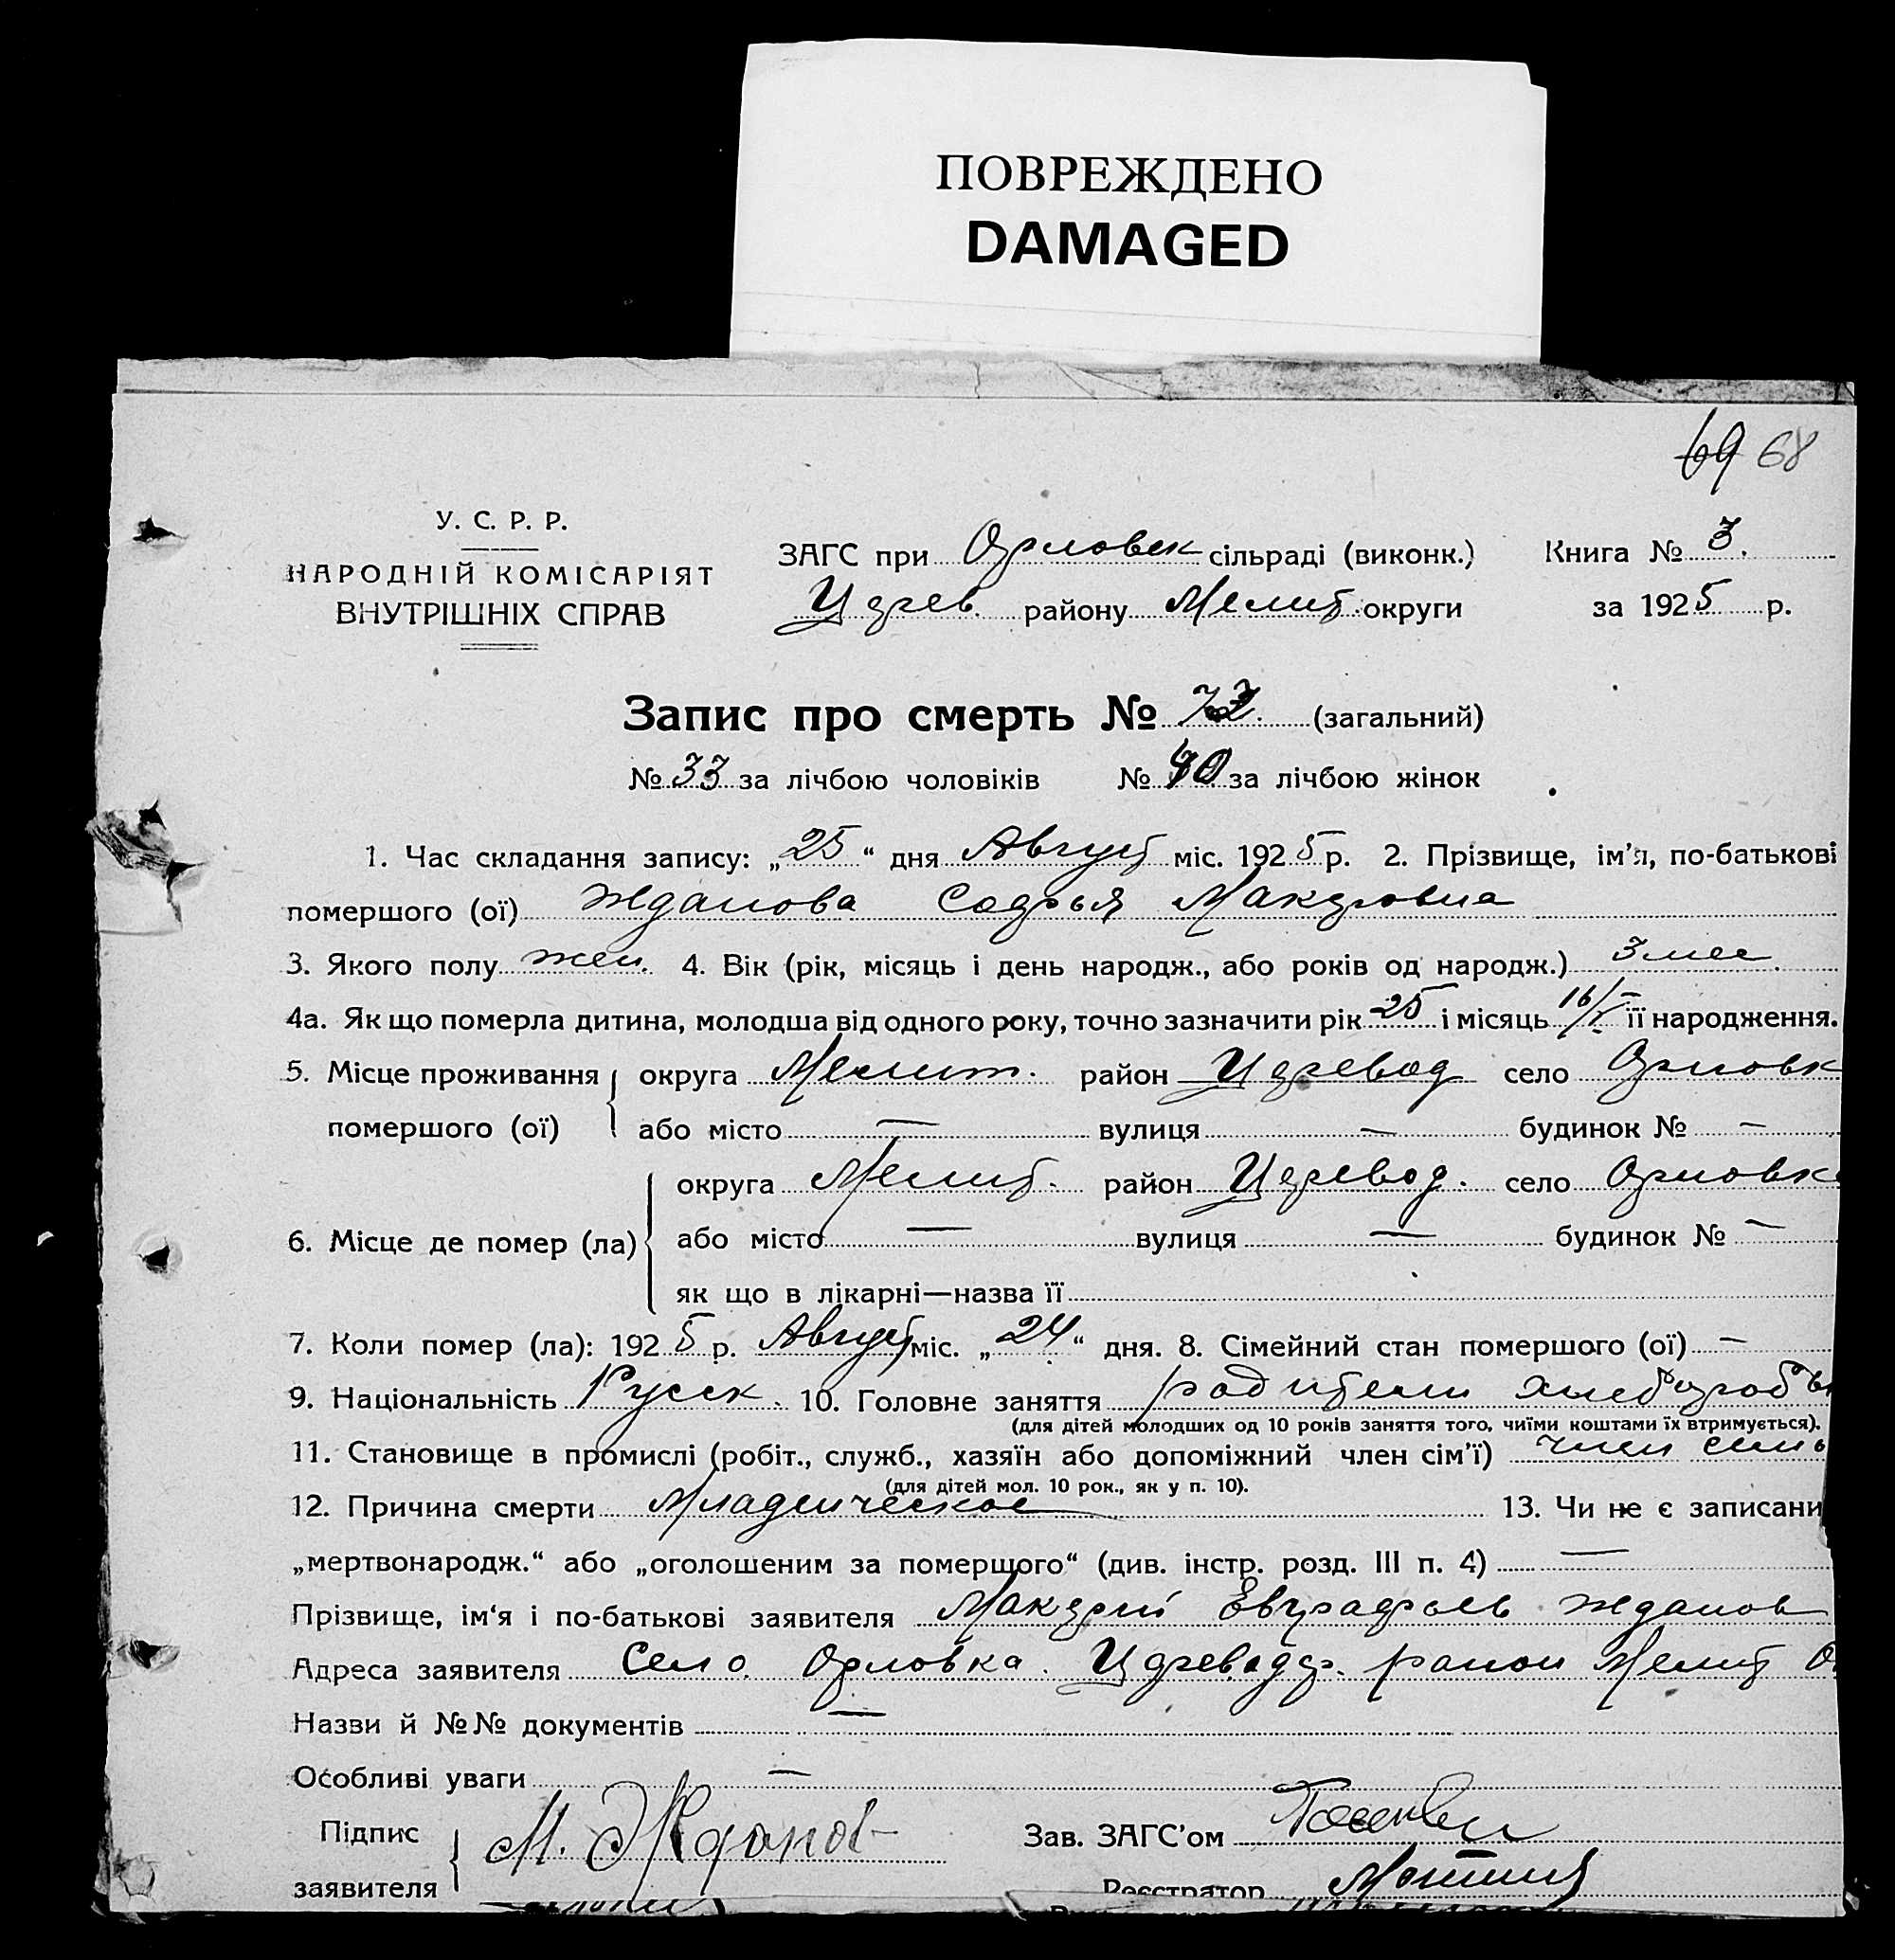 ПОВРЕЖДЕНО
DAMAGED
69 68
У. С. Р. Р.
НАРОДНІЙ КОМІСАРІЯТ
ВНУТРІШНІХ СПРАВ
ЗАГС при Орловск сільраді (виконк.) Книга № 3.
району Мелит. округи за 1925 р.
Запис про смерть № 73 (загальний)
№ 33 за лічбою чоловіків № 40 за лічбою жінок
1. Час складання запису: „25“ дня Август міс. 1925 р. 2. Прізвище, ім'я, по-батькові
помершого (ої) Жданова Софья Макаровна
3. Якого полу жен. 4. Вік (рік, місяць і день народж., або років од народж.) 3 мес.
4а. Як що померла дитина, молодша від одного року, точно зазначити рік 25 і місяць 16/V її народження.
5. Місце проживання округа Мелит. район село Орловк
помершого (ої) або місто — вулиця — будинок № —
округа Мелит. район село Орловк
6. Місце де помер (ла) або місто — вулиця — будинок № —
як що в лікарні—назва її
7. Коли помер (ла): 1925 р. Август міс. „24“ дня. 8. Сімейний стан помершого (ої) —
9. Національність Русск. 10. Головне заняття родители хлебороб
(для дітей молодших од 10 років заняття того, чиїми коштами їх втримується).
11. Становище в промислі (робіт., служб., хазяїн або допоміжний член сім'ї) член семь
(для дітей мол. 10 рок., як у п. 10).
12. Причина смерти Младенческое 13. Чи не є записани
„мертвонародж.“ або „оголошеним за померщого“ (див. інстр. розд. III п. 4) —
Прізвище, ім'я і по-батькові заявителя Жданов
Адреса заявителя Село Орловка. район Мелит О
Назви й №№ документів —
Особливі уваги —
Підпис
заявителя М. Жданов
Зав. ЗАГС'ом
Реєстратор